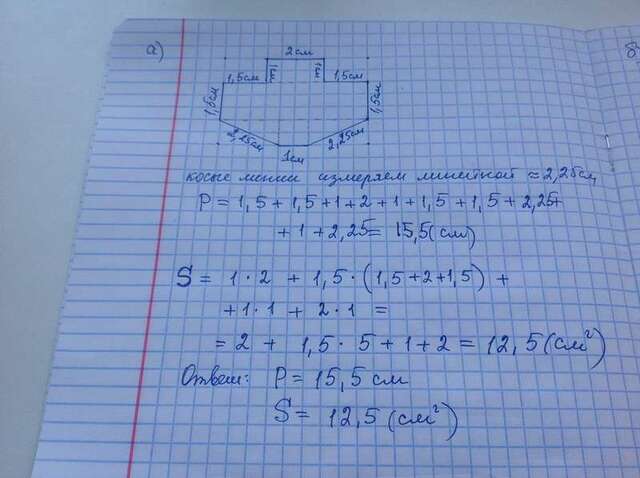 а)
б
2 см
1,5см 1 см 1 см 1,5см
1,5см 1,5см
2,25см 2,25см
1см
косые линии измеряем линейкой ≈ 2,25см,
P = 1,5 + 1,5 + 1 + 2 + 1 + 1,5 + 1,5 + 2,25+
+ 1 + 2,25 = 15,5(см)
S = 1 · 2 + 1,5 · (1,5 + 2 + 1,5) +
+ 1 · 1 + 2 · 1 =
= 2 + 1,5 · 5 + 1 + 2 = 12,5(см²)
Ответ: P = 15,5 см
S = 12,5 (см²)